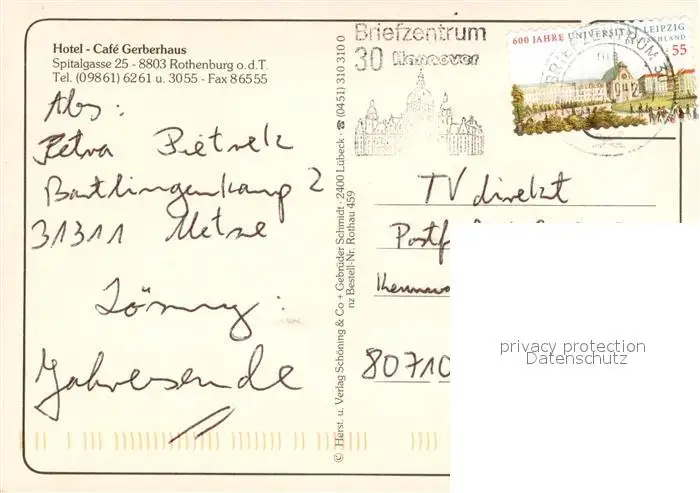 Hotel - Café Gerberhaus
Spitalgasse 25 - 8803 Rothenburg o.d.T.
Tel. (09861) 6261 u. 3055 - Fax 86555
Abs:
Petra Pietrek
Bartlingerkamp 2
31311 Uetze
Lösung:
Jahresende
© Herst. u. Verlag Schöning & Co + Gebrüder Schmidt · 2400 Lübeck · ☎ (0451) 310 310 0
nz Bestell-Nr. Rothau 459
Briefzentrum
30 Hannover
600 JAHRE UNIVERSITÄT LEIPZIG
55
BRIEFZENTRUM 30
TV direkt
Postf
Kennwo
80710
privacy protection
Datenschutz